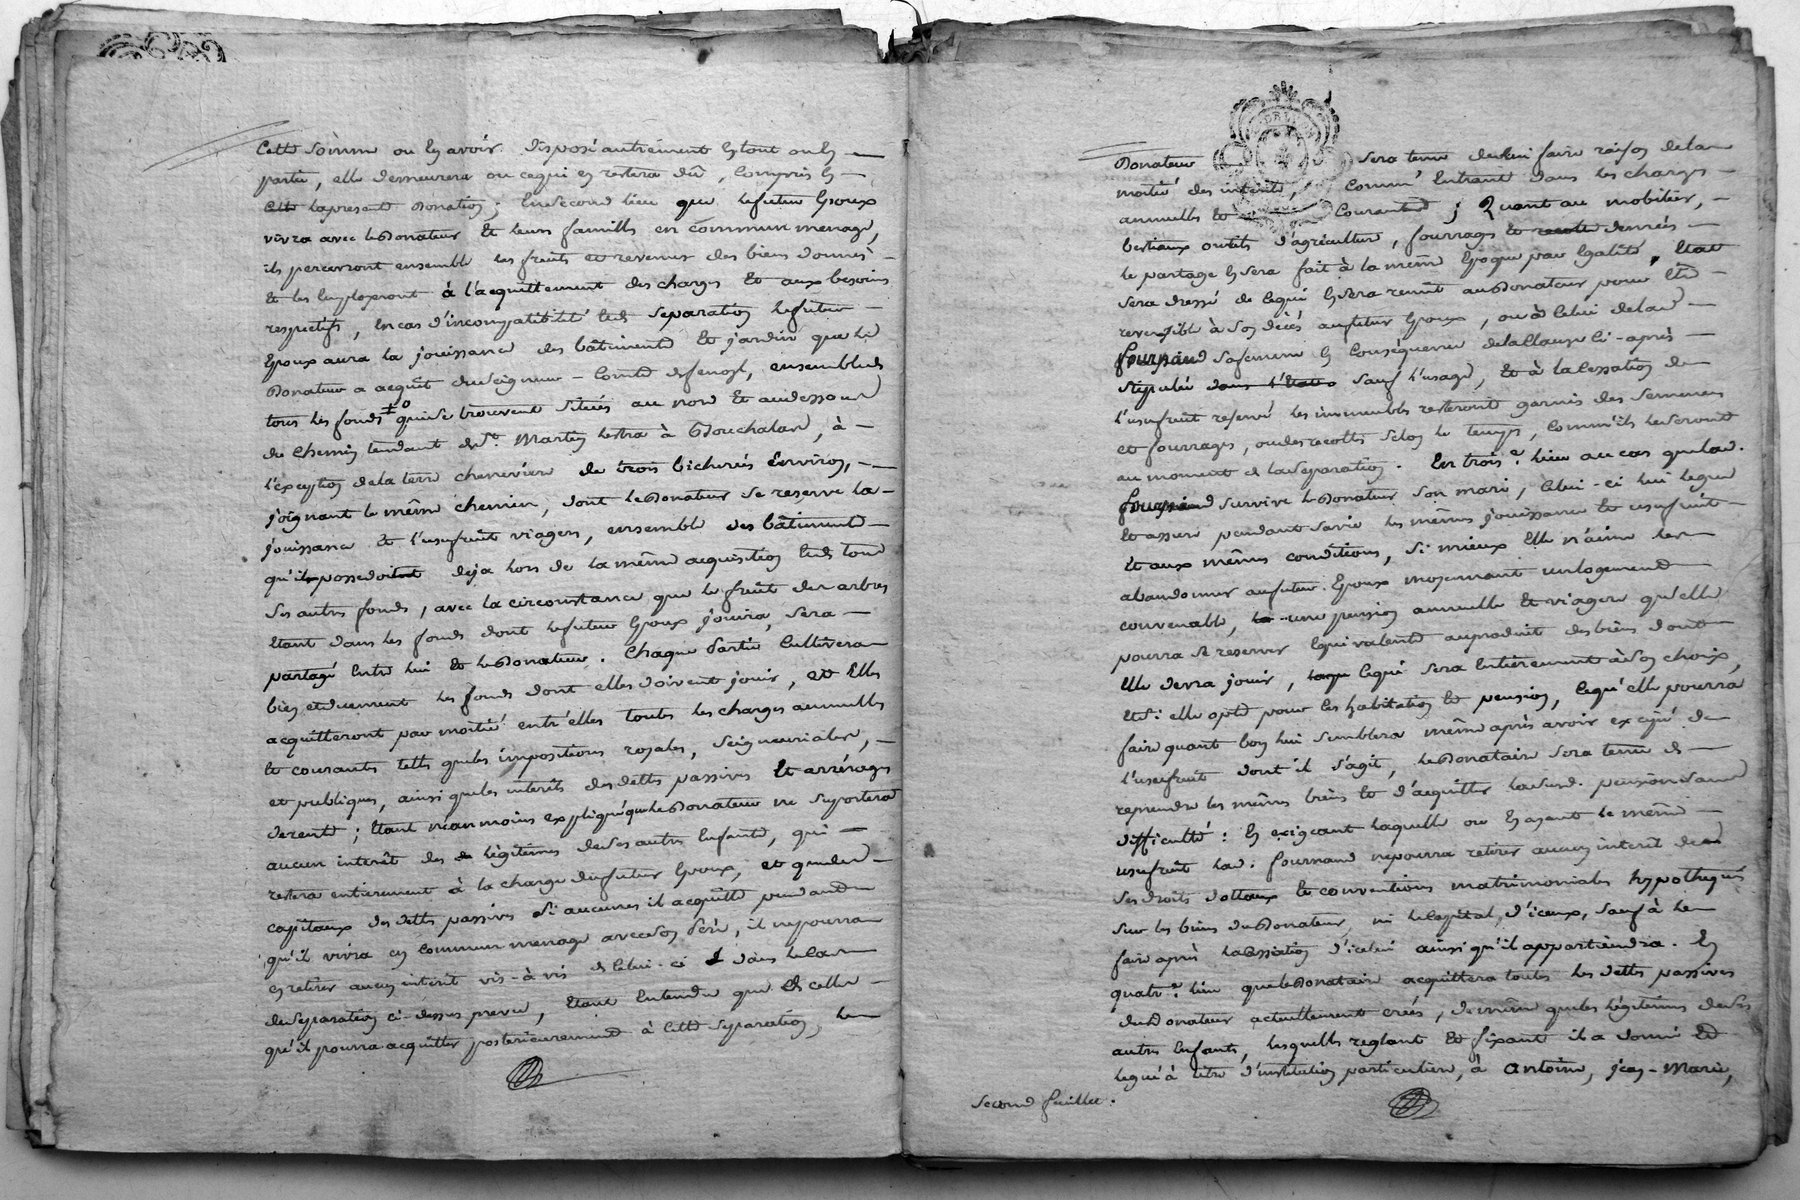 Cette somme ou en avoir disposé autrement en tout ou en
partie, elle demeurera ou ce qui en restera dû, compris en
cette la presente Donation; En second lieu que le futur Epoux
vivra avec le Donateur Et leurs familles en commun menage,
ils percevront ensemble les fruits et revenus des biens donnés
Et les employeront à l'acquittement des charges Et aux besoins
respectifs, En cas d'incompatibilité Et de separation le futur
Epoux aura la jouissance des bâtiments Et jardin que le
Donateur a acquit du Seigneur Comte ensemble de
tous les fonds qui se trouvent situés au nord Et au dessous
du Chemin tendant de St. Martin lestra à Bouchalas, à
l'exception de la terre cheneviere de trois bicherées Environ,
joignant le même chemin, dont le Donateur se reserve la
jouissance Et l'usufruit viagers, ensemble des bâtiments
qu'il possedoit deja hors de la même acquisition Et de tous
ses autres fonds, avec la circonstance que le fruit des arbres
Etant dans les fonds dont le futur Epoux jouira, sera
partagé Entre lui Et le Donateur. Chaque Partie Cultivera
bien et duement les fonds dont elles doivent jouir, et Elles
acquitteront par moitié entr'elles toutes les charges annuelles
Et courantes telles que les impositions royales, seigneuriales,
et publiques, ainsi que les interêts des dettes passives Et arrérages
de rente; Etant néanmoins expliqué que le Donateur ne suportera
aucun interêt des de légitimes de ses autres Enfants, qui
restera entierement à la charge du futur Epoux, et que des
capitaux des dettes passives si aucunes il acquitte pendant
qu'il vivra en commun menage avec son Père, il ne pourra
en retirer aucun interêt vis-à-vis de Celui-ci dans le cas
de separation ci-dessus prevu, Etant Entendu que de celles
qu'il pourra acquitter posterieurement à Cette Separation, le
Donateur sera tenu de lui faire raison de la
moitié des interêts, Comm' Entrant dans les charges
annuelles Et Courantes; Quant au mobilier,
bestiaux outils d'agriculture, fourrages Et recolte denrées
le partage En sera fait à la même Epoque par Egalité, Etat
sera dressé de ce qui En sera remit au Donateur pour Etre
reversible à son décès au futur Epoux, ou à celui de lad
fournand sa femme En Conséquence de la Clause Ci-après
stipulée dans l'Etat sauf l'usage, Et à la Cessation de
l'usufruit reservé les immeubles resteront garnis des semences
et fourrages, ou des recoltes selon le temps, comm'ils le seront
au moment de la separation. En trois.e lieu au cas que lad.
fournand survive le Donateur son mari, Celui-ci lui legue
Et assure pendant sa vie les mêmes jouissance Et usufruit
Et aux mêmes conditions, si mieux Elle n'aime les
abandonner au futur Epoux moyennant un logement
convenable, Et une pension annuelle Et viagere qu'elle
pourra se reserver Equivalente au produit des biens dont
Elle devra jouir, ce qui sera Entierement à son choix,
Et si elle opte pour les habitation Et pension, ce qu'elle pourra
faire quant bon lui semblera même après avoir excipé de
l'usufruit dont il s'agit, le Donataire sera tenu de
reprendre les mêmes biens Et d'acquitter lad. pension sans
difficulté: En exigeant laquelle ou En ayant le même
usufruit lad. fournand ne pourra retirer aucun interêt de
ses droits dottaux Et conventions matrimoniales hypothequés
sur les biens du Donateur, ni le capital d'iceux, sauf à le
faire après la Cessation d'icelui ainsi qu'il appartiendra. En
quatr.e lieu que le Donataire acquittera toutes les dettes passives
du Donateur actuellement créés, de même que les légitimes de ses
autres Enfants, lesquelles reglant Et fixant il a donné Et
legué à titre d'institution particuliere, à Antoine, jean-Marie,
second feuillet.